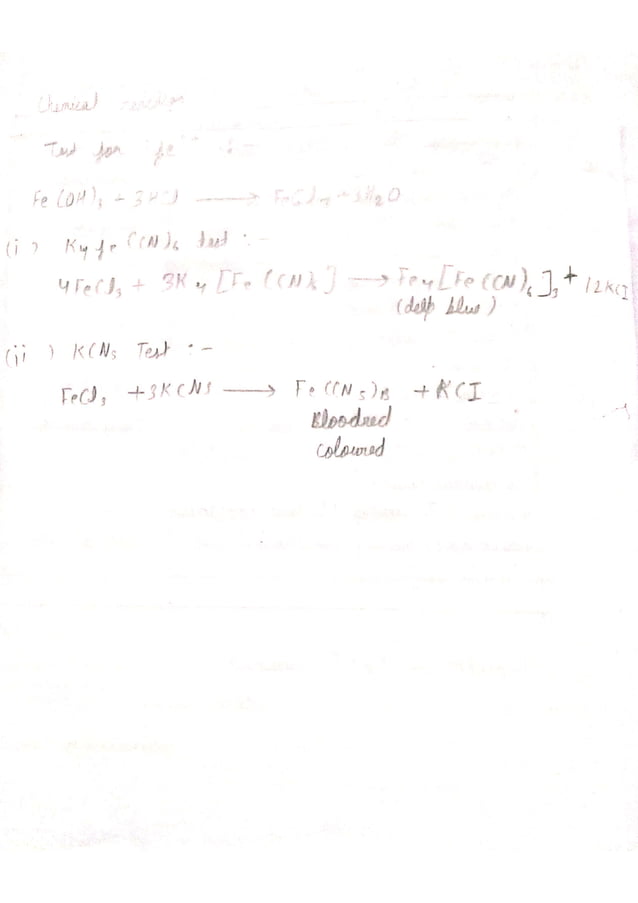 Chemical reaction
Test for fe :-
Fe(OH)3 + 3HCl ⟶ FeCl3 + 3H2O
(i) K4fe(CN)6 test :-
4FeCl3 + 3K4[Fe(CN)6] ⟶ Fe4[Fe(CN)6]3 + 12KCl
(deep blue)
(ii) KCNS Test :-
FeCl3 + 3KCNS ⟶ Fe(CNS)3 + KCl
Bloodred
coloured